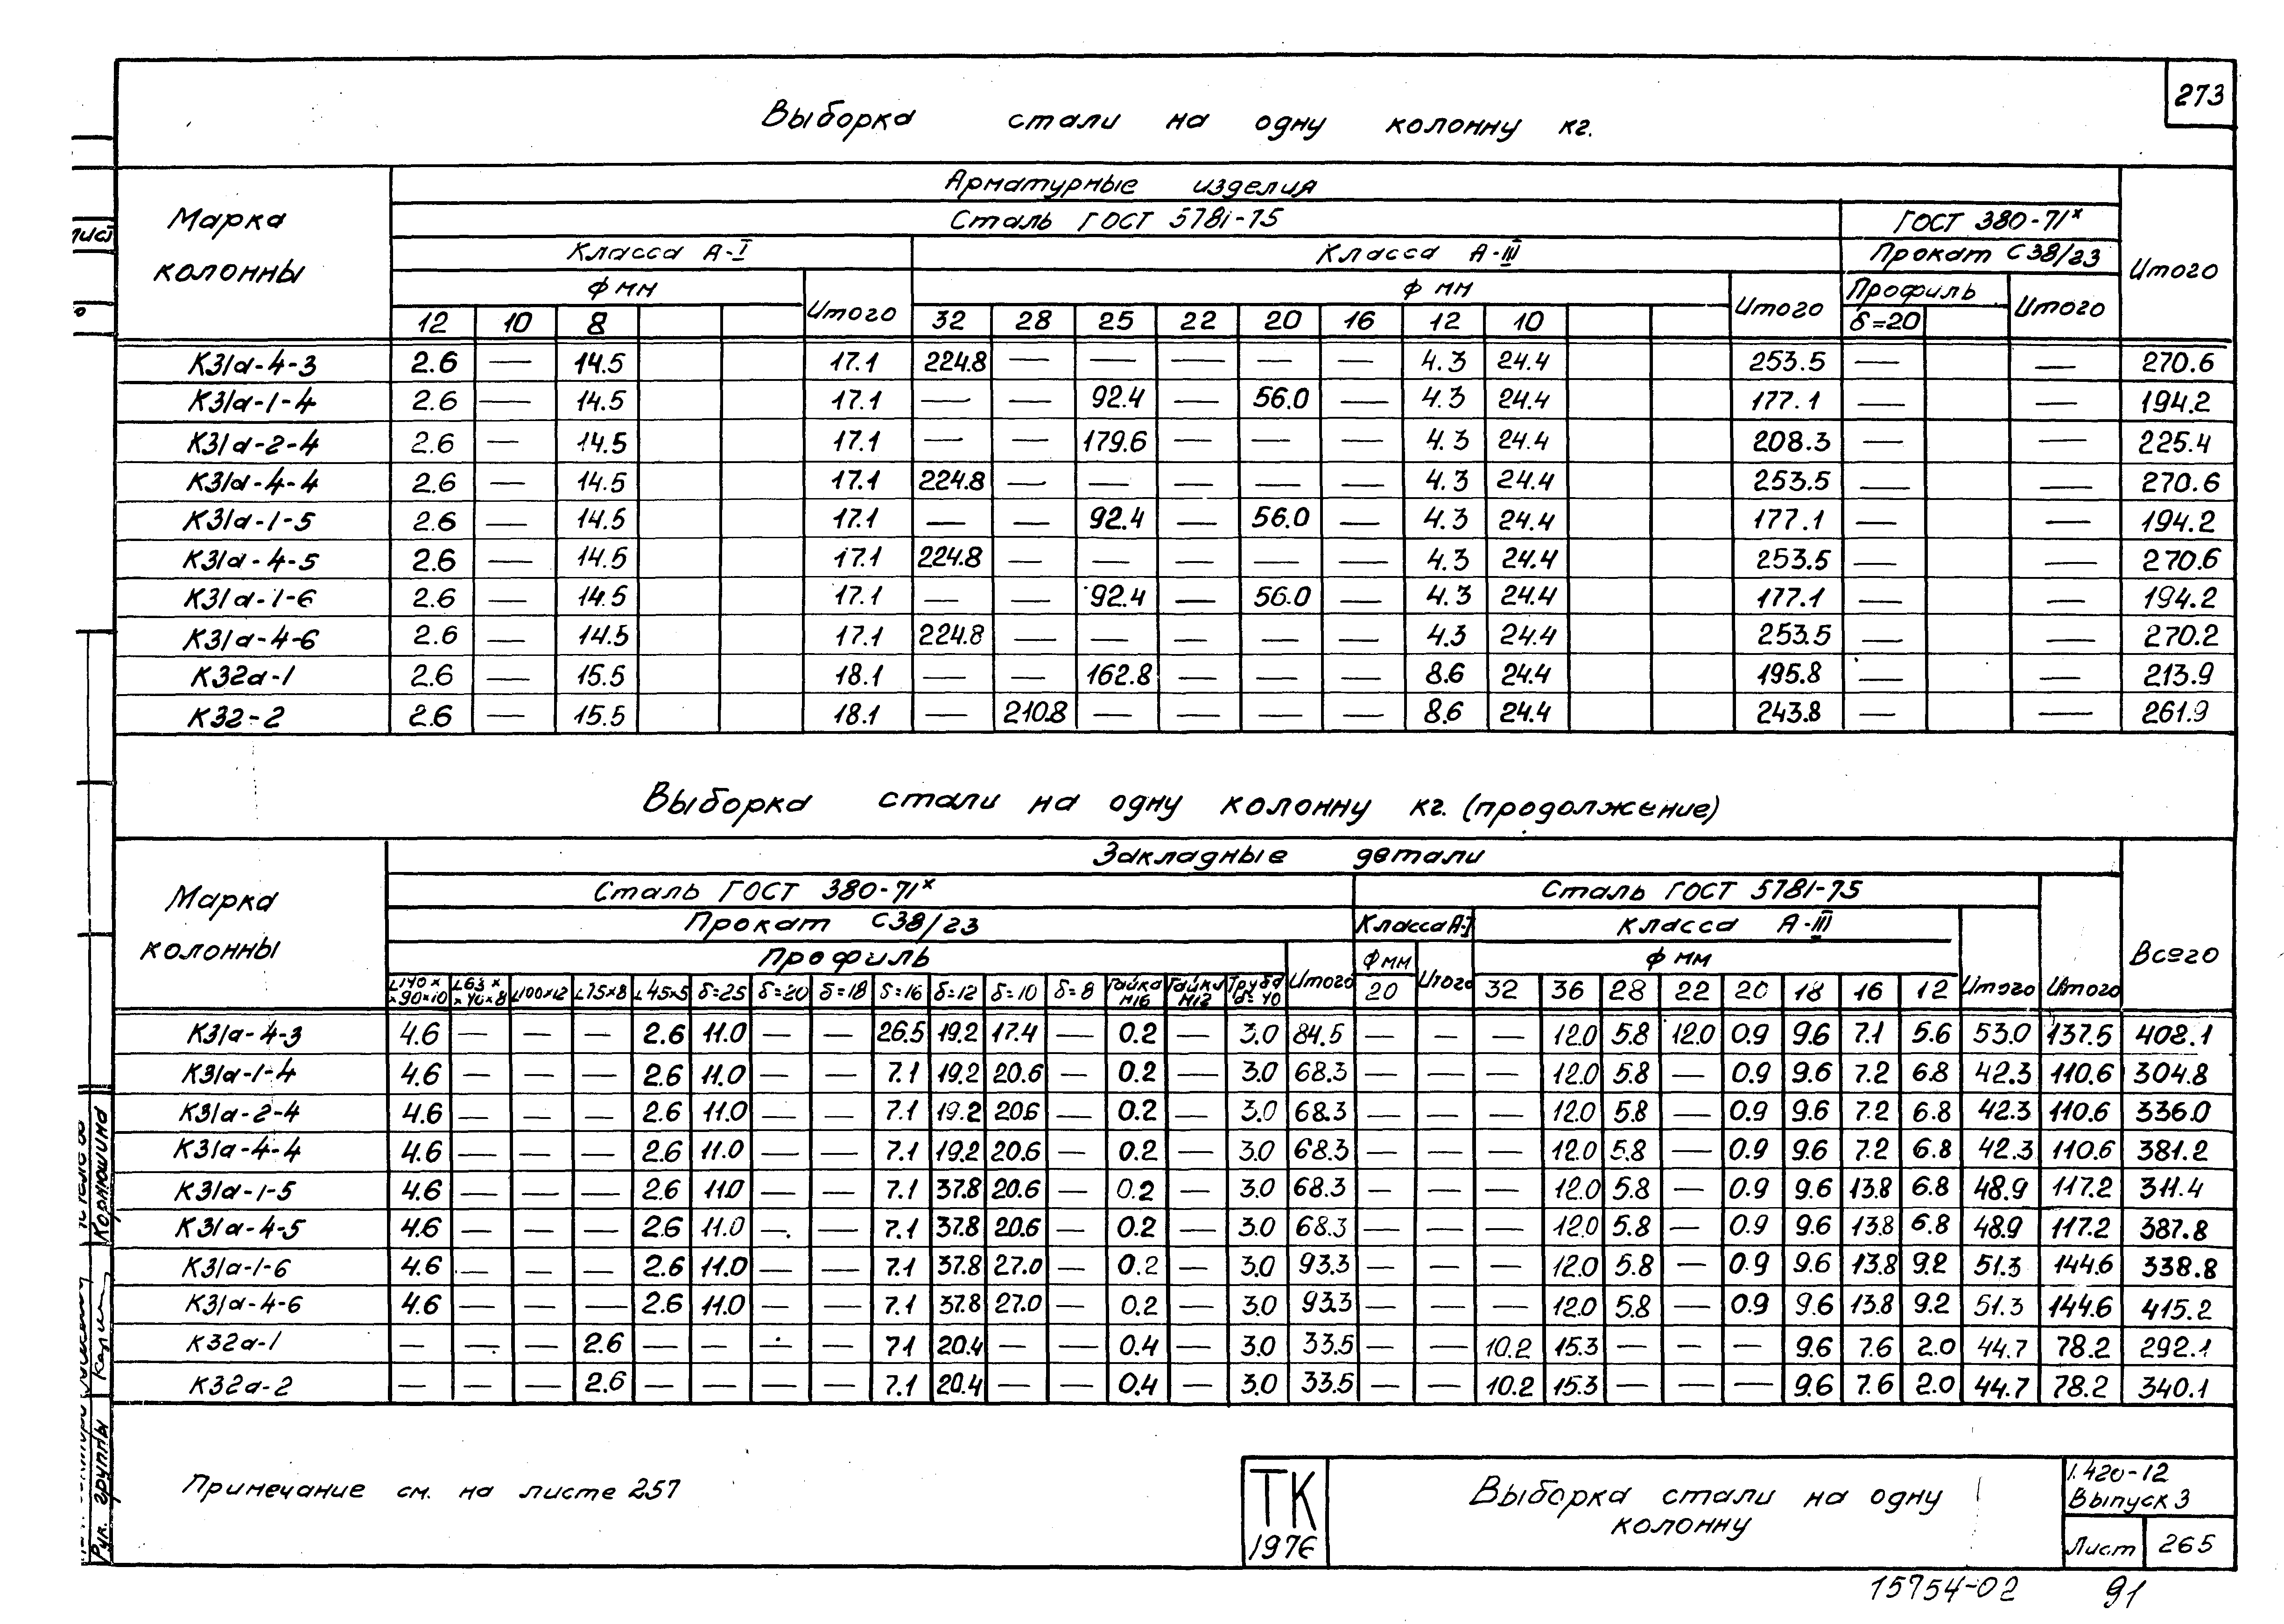 273
Выборка стали на одну колонну кг.
Марка колонны
Арматурные изделия
Итого
Сталь ГОСТ 5781-75
ГОСТ 380-71ˣ
Класса А-I
Класса А-III
Прокат С38/23
ф мм
Итого
ф мм
Итого
Профиль
Итого
12 10 8 32 28 25 22 20 16 12 10 δ=20
К31а-4-3 2.6 — 14.5 17.1 224.8 — — — — — 4.3 24.4 253.5 — — 270.6
К31а-1-4 2.6 — 14.5 17.1 — — 92.4 — 56.0 — 4.3 24.4 177.1 — — 194.2
К31а-2-4 2.6 — 14.5 17.1 — — 179.6 — — — 4.3 24.4 208.3 — — 225.4
К31а-4-4 2.6 — 14.5 17.1 224.8 — — — — — 4.3 24.4 253.5 — — 270.6
К31а-1-5 2.6 — 14.5 17.1 — — 92.4 — 56.0 — 4.3 24.4 177.1 — — 194.2
К31а-4-5 2.6 — 14.5 17.1 224.8 — — — — — 4.3 24.4 253.5 — — 270.6
К31а-1-6 2.6 — 14.5 17.1 — — 92.4 — 56.0 — 4.3 24.4 177.1 — — 194.2
К31а-4-6 2.6 — 14.5 17.1 224.8 — — — — — 4.3 24.4 253.5 — — 270.2
К32а-1 2.6 — 15.5 18.1 — — 162.8 — — — 8.6 24.4 195.8 — — 213.9
К32-2 2.6 — 15.5 18.1 — 210.8 — — — — 8.6 24.4 243.8 — — 261.9
Выборка стали на одну колонну кг. (продолжение)
Марка колонны
Закладные детали
Всего
Сталь ГОСТ 380-71ˣ
Сталь ГОСТ 5781-75
Итого
Прокат С38/23
Класса А-I
Класса А-III
Профиль
Итого
Фмм
Итого
ф мм
Итого
L140××90×10 L63××40×8 L100×12 L75×8 L45×5 δ=25 δ=20 δ=18 δ=16 δ=12 δ=10 δ=8 Гайка М16 Гайка М12 Труба d=40 20 32 36 28 22 20 18 16 12
К31а-4-3 4.6 — — — 2.6 11.0 — — 26.5 19.2 17.4 — 0.2 — 3.0 84.5 — — — 12.0 5.8 12.0 0.9 9.6 7.1 5.6 53.0 137.5 408.1
К31а-1-4 4.6 — — — 2.6 11.0 — — 7.1 19.2 20.6 — 0.2 — 3.0 68.3 — — — 12.0 5.8 — 0.9 9.6 7.2 6.8 42.3 110.6 304.8
К31а-2-4 4.6 — — — 2.6 11.0 — — 7.1 19.2 20.6 — 0.2 — 3.0 68.3 — — — 12.0 5.8 — 0.9 9.6 7.2 6.8 42.3 110.6 336.0
К31а-4-4 4.6 — — — 2.6 11.0 — — 7.1 19.2 20.6 — 0.2 — 3.0 68.3 — — — 12.0 5.8 — 0.9 9.6 7.2 6.8 42.3 110.6 381.2
К31а-1-5 4.6 — — — 2.6 11.0 — — 7.1 37.8 20.6 — 0.2 — 3.0 68.3 — — — 12.0 5.8 — 0.9 9.6 13.8 6.8 48.9 117.2 311.4
К31а-4-5 4.6 — — — 2.6 11.0 — — 7.1 37.8 20.6 — 0.2 — 3.0 68.3 — — — 12.0 5.8 — 0.9 9.6 13.8 6.8 48.9 117.2 387.8
К31а-1-6 4.6 — — — 2.6 11.0 — — 7.1 37.8 27.0 — 0.2 — 3.0 93.3 — — — 12.0 5.8 — 0.9 9.6 13.8 9.2 51.3 144.6 338.8
К31а-4-6 4.6 — — — 2.6 11.0 — — 7.1 37.8 27.0 — 0.2 — 3.0 93.3 — — — 12.0 5.8 — 0.9 9.6 13.8 9.2 51.3 144.6 415.2
К32а-1 — — — 2.6 — — — — 71 20.4 — — 0.4 — 3.0 33.5 — — 10.2 15.3 — — — 9.6 7.6 2.0 44.7 78.2 292.1
К32а-2 — — — 2.6 — — — — 7.1 20.4 — — 0.4 — 3.0 33.5 — — 10.2 15.3 — — — 9.6 7.6 2.0 44.7 78.2 340.1
Примечание см. на листе 257
ТК
1976
Выборка стали на одну
колонну
1.420-12
Выпуск 3
Лист 265
15754-02 91
Рук. группы
Корнюшина